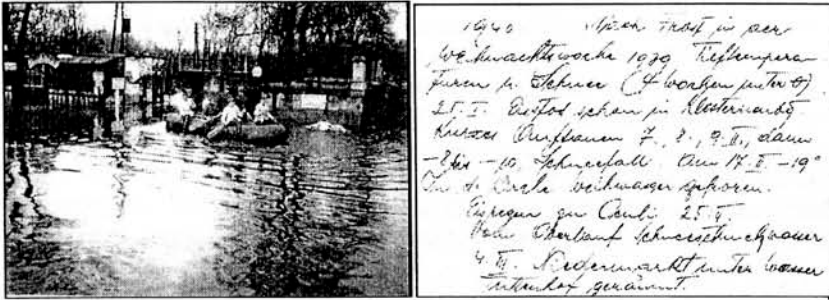 1940 Frost in der
Weihnachtswoche 1939 Tieftempera
turen u. Schnee (4 Wochen unter 0)
25. I. schon in Klosterneubg
Kurzes Auftauen 7., 8., 9. II., dann
-8 bis -10, Schneefall. Am 17. II. -19°
In d. gefroren.
Eisregen zu Oculi 25. II.
Vom Oberlauf Schneeschmelzwasser
4. III. Niedermarkt unter Wasser
geräumt.